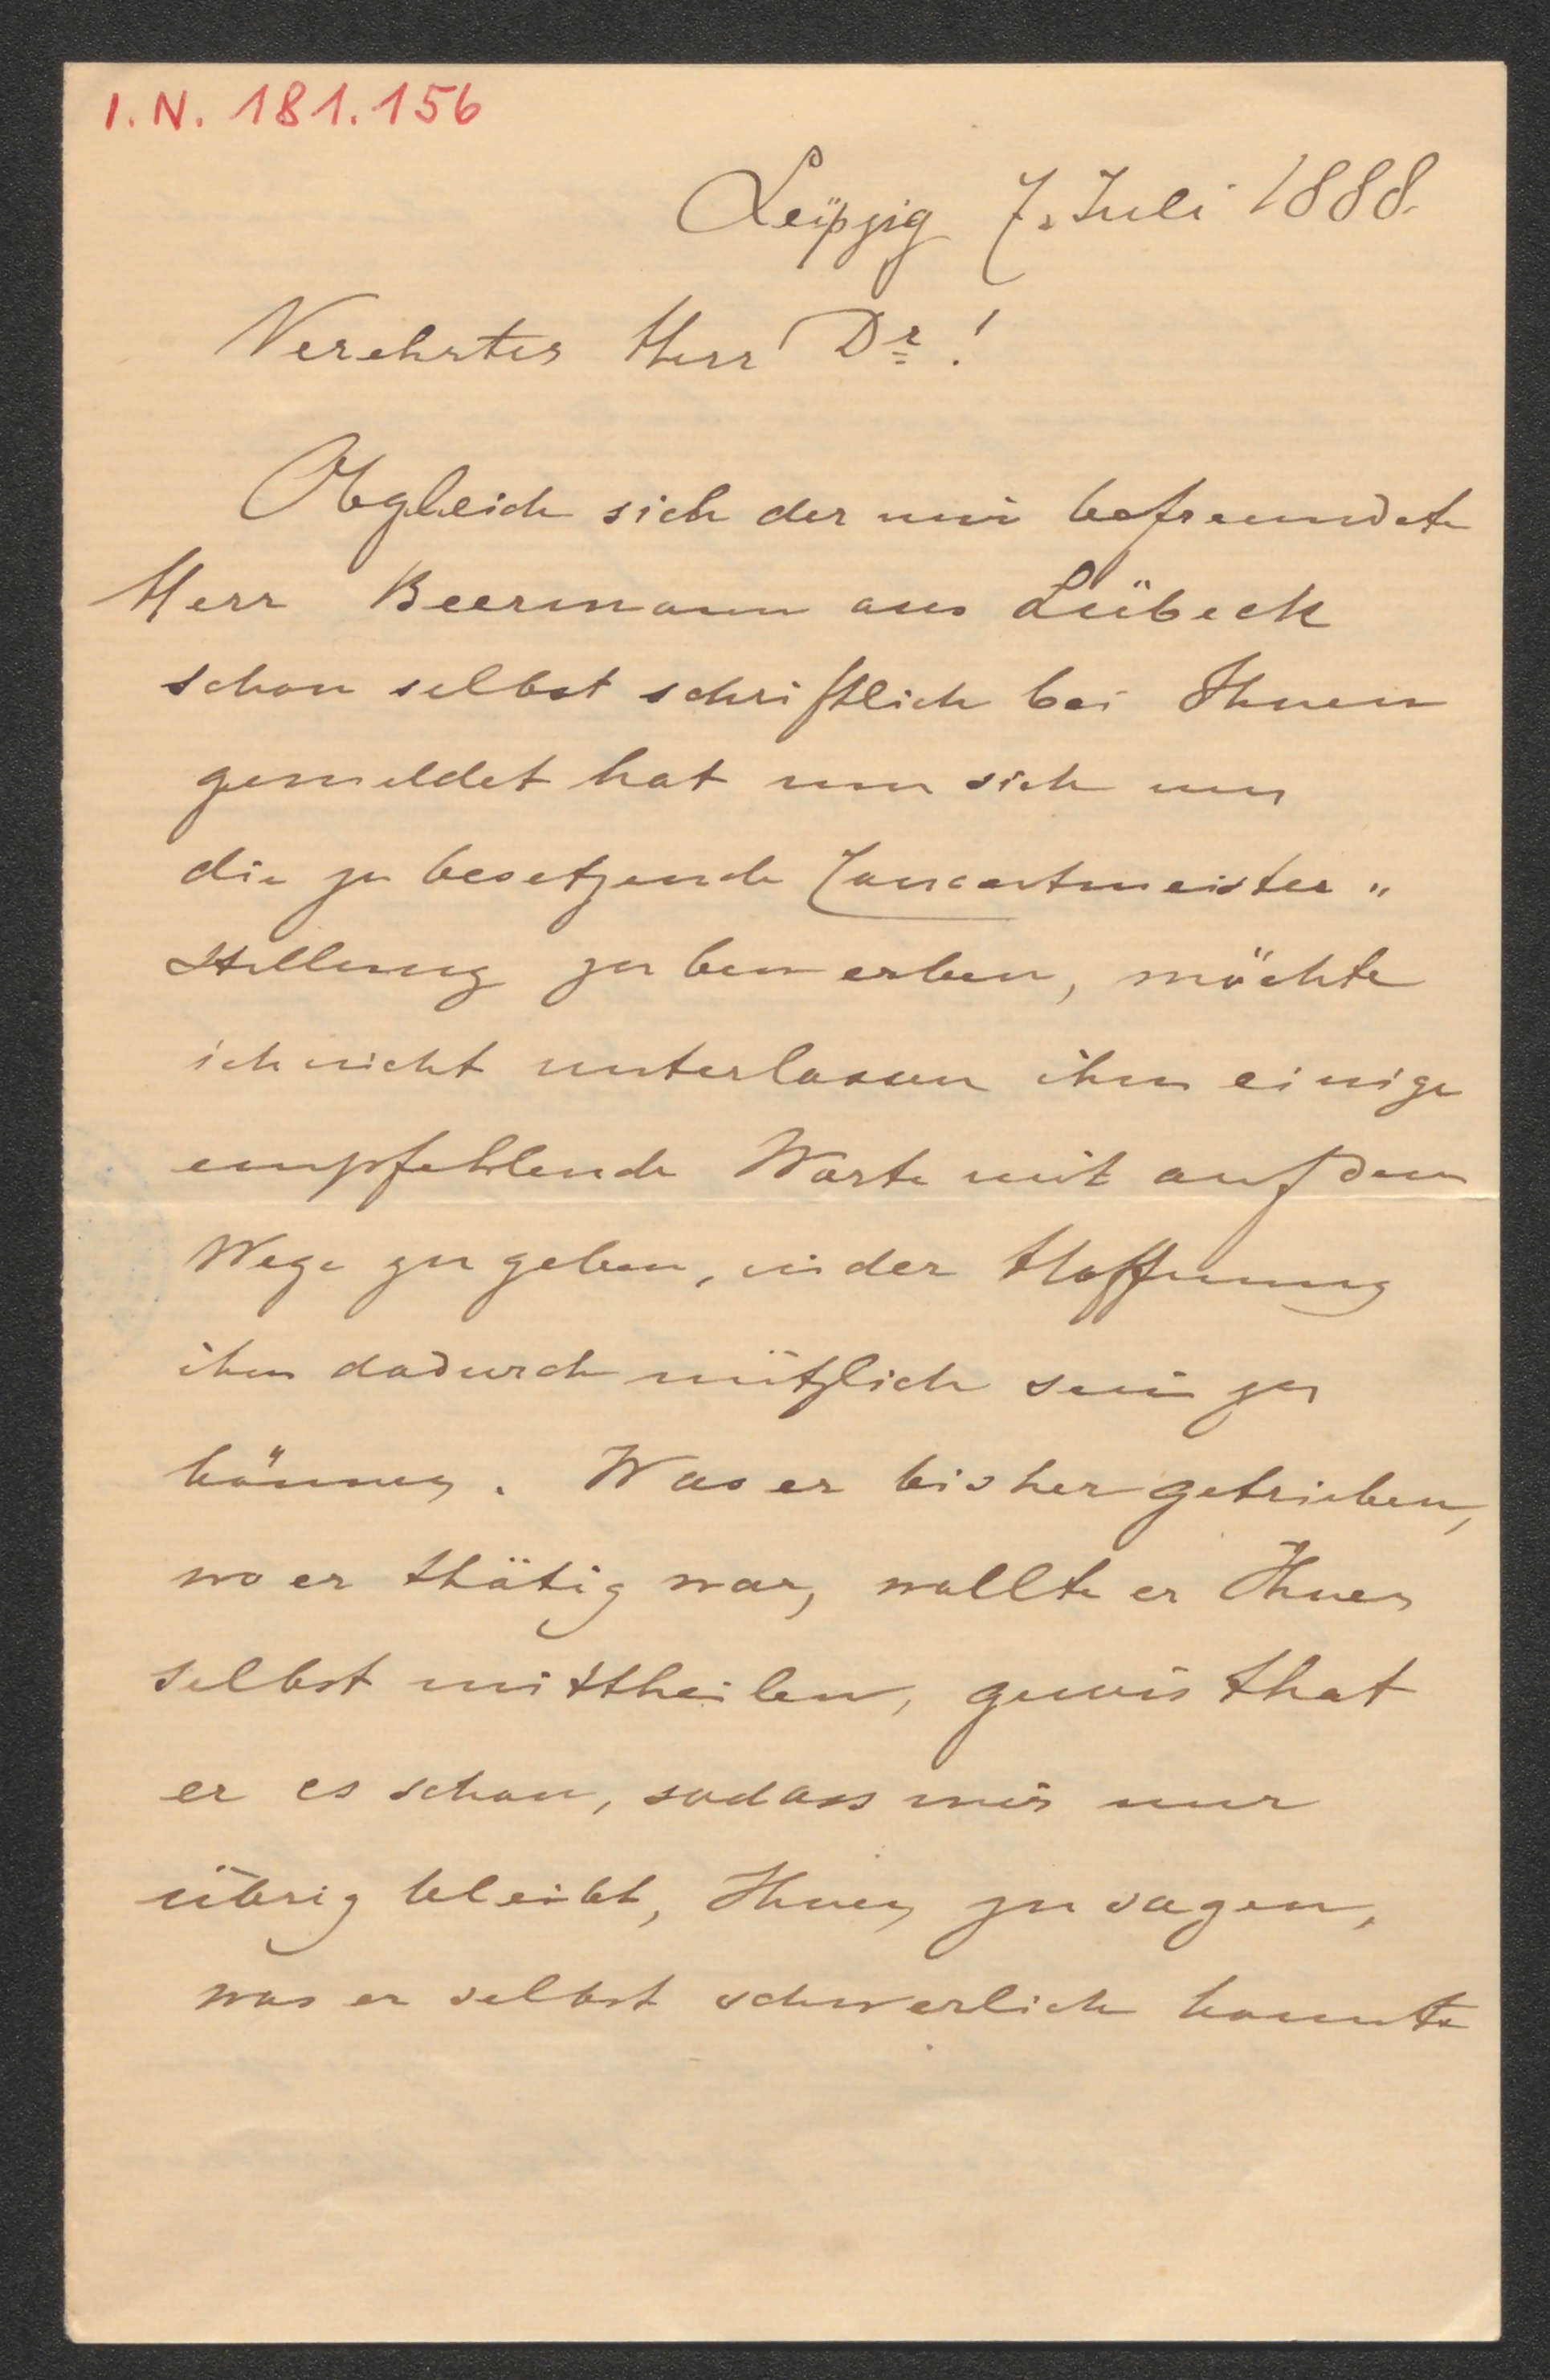 I.N. 181.156
Leipzig 7. Juli 1888.
Verehrter Herr Dr!
Obgleich sich der mir befreundete
Herr Beermann aus Lübeck
schon selbst schriftlich bei Ihnen
gemeldet hat um sich um
die zu besetzende Concertmeister"
stellung zu bewerben, möchte
ich nicht unterlassen ihm einige
empfehlende Worte mit auf den
Weg zu geben, in der Hoffnung
ihm dadurch nützlich sein zu
können. Was er bisher getrieben,
wo er thätig war, wollte er Ihnen
selbst mittheilen, gewis that
er es schon, sodass mir nur
übrig bleibt, Ihnen zu sagen,
was er selbst schwerlich konnte